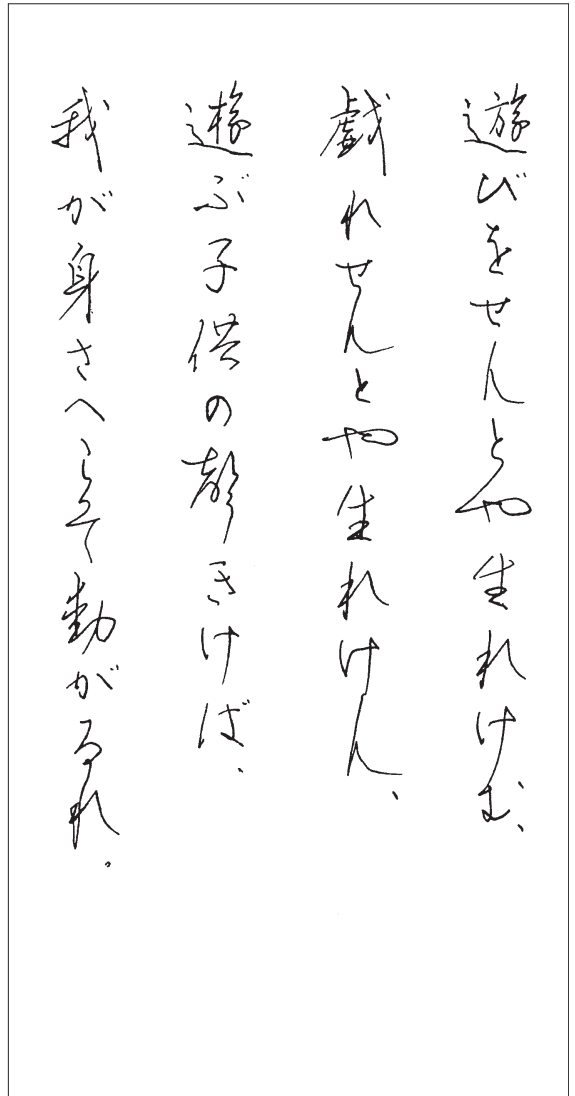 遊びをせんとや生れけむ、
戯れせんとや生れけん、
遊ぶ子供の聲きけば、
我が身さへこそ動がるれ。